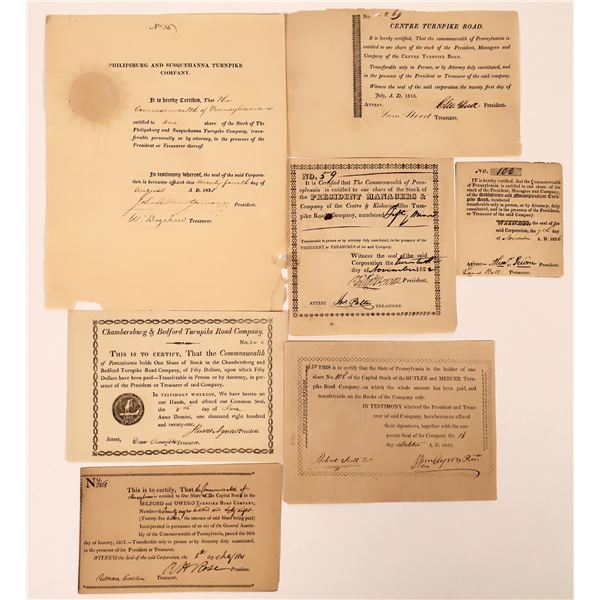 No 26
PHILIPSBURG AND SUSQUEHANNA TURNPIKE
COMPANY.
It is hereby Certified, That The
Commonwealth of Pennsylvania is
entitled to One share of the Stock of The
Philipsburg and Susquehanna Turnpike Company, trans-
ferable personally or by attorney, in the presence of
the President or Treasurer thereof.
In testimony whereof, the seal of the said Corpora-
tion is hereunto affixed this twenty fourth day of
August A. D. 1821
President.
Treasurer.
No. 69
CENTRE TURNPIKE ROAD.
It is hereby Certified, that the commonwealth of Pennsylvania
is entitled to one share of the stock of the President, Managers and
Company of the CENTRE TURNPIKE ROAD.
Transferable only in Person, or by Attorney duly constituted, in
and the presence of the President or Treasurer of the said company.
Witness the seal of the said corporation the twenty first day of
July, A. D. 1813.
ATTEST President.
Treasurer.
NO. 59
It is Certified that The Commonwealth of Penn-
sylvania is entitled to one share of the Stock of the
PRESIDENT MANAGERS &
Company of the Centre & Kishacoquillas Turn-
pike Road Company, numbered fifty nine
Transferable in person or by attorney duly constituted, in the presence of the
PRESIDENT or TREASURER of the said company.
Witness the seal of the said
Corporation the
day of November 182
President.
ATTEST Jno. Potter TREASURER.
NO. 100
IT IS Certified, that the Commonwealth of
Pennsylvania is entitled to one share of the
Stock of the President, Managers and Company, of
the Robbstown and Mountpleasant Turnpike
Road, numbered
Transferable only in person or by attorney duly consti-
tuted, in the presence of the President or Treasurer of the
said Company.
WITNESS, the seal of the
said Corporation, the 7th day
of November A. D. 1826
President.
James Bell Treasurer.
Chambersburg & Bedford Turnpike Road Company.
THIS IS TO CERTIFY, That the Commonwealth
of Pennsylvania holds One Share of Stock in the Chambersburg and
Bedford Turnpike Road Company, of Fifty Dollars, upon which Fifty
Dollars have been paid—Transferable in Person, or by Attorney, in
presence of the President or Treasurer of said Company.
IN TESTIMONY WHEREOF, We have hereto set
our Hands, and affixed our Common Seal, the
8th day of June
Anno Domini, one thousand eight hundred
and twenty-one.
President.
Attest, Treasurer.
THIS is to certify that the State of Pennsylvania is the holder of
one share No. 108 of the Capital Stock of the BUTLER and MERCER Turn-
pike Road Company, on which the whole amount has been paid, and
transferable on the Books of the Company only.
IN TESTIMONY whereof the President and Treas-
urer of said Company, have hereunto affixed
their signatures, together with the cor-
porate seal of the Company the 16
October A. D. 1823.
Robert Scott
No
This is to certify, That the Commonwealth of
Pennsylvania entitled to One Share of the Capital Stock in the
MILFORD and OWEGO TURNPIKE ROAD COMPANY,
Numbered Twenty eight hundred and eighty eight
(Twenty five dollars, the amount of said Share being paid)
Incorporated in pursuance of an act of the General Assem-
bly of the Commonwealth of Pennsylvania, passed the 26th
day of January, 1807.—Transferable only in person or by Attorney duly constituted,
in the presence of the President or Treasurer.
WITNESS the Seal of the said Corporation, the 8th day of
R H Rose President.
Putnam Catlin Treasurer.